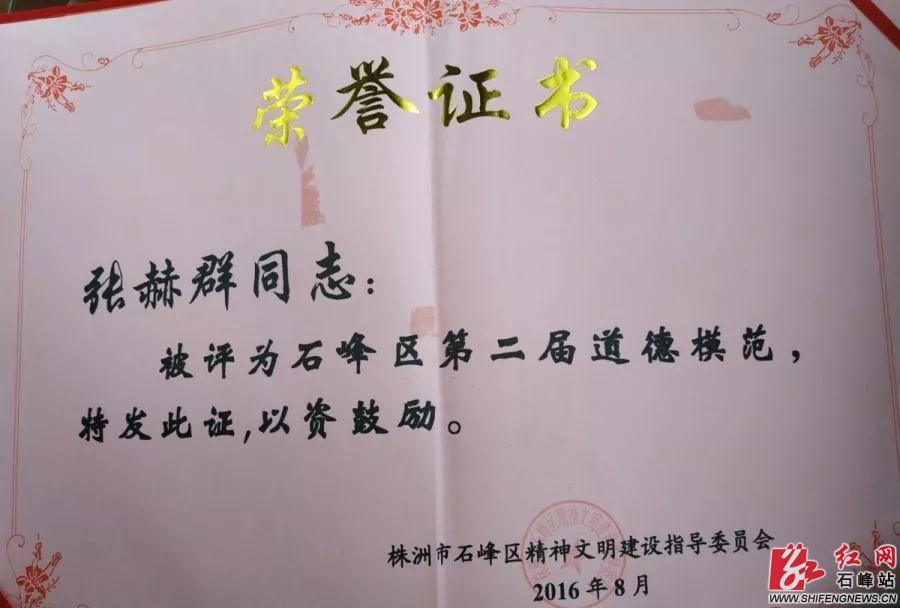 荣誉证书
张赫群同志：
被评为石峰区第二届道德模范，
特发此证，以资鼓励。
株洲市石峰区精神文明建设指导委员会
2016年8月
红网
石峰站
WWW.SHIFENGNEWS.CN